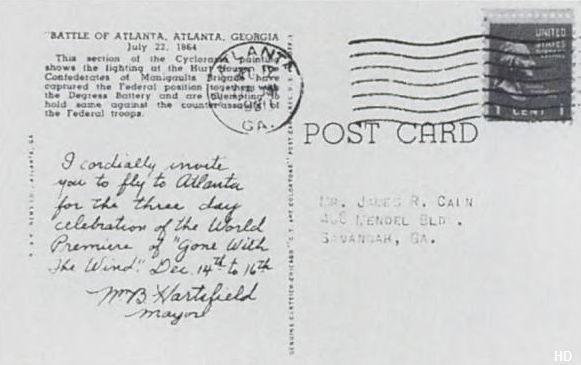 "BATTLE OF ATLANTA, ATLANTA, GEORGIA
July 22, 1864
This section of the Cyclorama painting
shows the fighting at the Hurt House. The
Confederates of Manigaults Brigade have
captured the Federal position together with
the Degress Battery and are attempting to
hold same against the counter-assault of
the Federal troops.
ATLANTA
GA.
UNITED
STATES
1 CENT 1
POST CARD
I cordially invite
you to fly to Atlanta
for the three day
celebration of the World
Premiere of "Gone With
The Wind". Dec. 14th to 16th
Wm B Hartsfield
Mayor
MR. JAMES R. CAIN
MENDEL BLDG.
SAVANNAH, GA.
HD